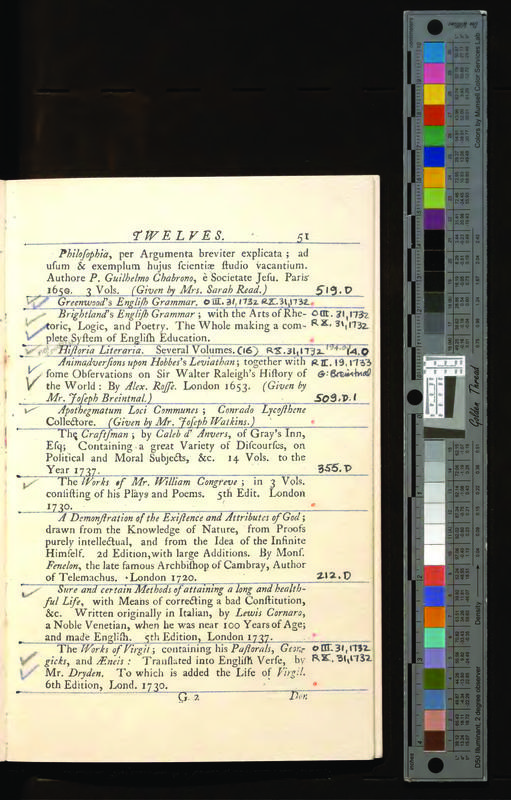 TWELVES. 51
Philoſophia, per Argumenta breviter explicata; ad
uſum & exemplum hujus ſcientiæ ſtudio vacantium.
Authore P. Guilhelmo Chabrono, è Societate Jeſu. Paris
1650. 3 Vols. (Given by Mrs. Sarah Read.) 519.D
Greenwood's Engliſh Grammar. O III. 31, 1732 R X. 31, 1732.
Brightland's Engliſh Grammar; with the Arts of Rhe- O III. 31, 1732
toric, Logic, and Poetry. The Whole making a com- R X. 31, 1732
plete Syſtem of Engliſh Education.
Hiſtoria Literaria. Several Volumes. (16) R X. 31, 1732
Animadverſions upon Hobbes's Leviathan; together with R II. 19, 1733
ſome Obſervations on Sir Walter Raleigh's Hiſtory of G: Breintnal
the World: By Alex. Roſſe. London 1653. (Given by
Mr. Joſeph Breintnal.) 509.D.1
Apothegmatum Loci Communes; Conrado Lycoſthene
Collectore. (Given by Mr. Joſeph Watkins.)
The Craftſman; by Caleb d'Anvers, of Gray's Inn,
Eſq; Containing a great Variety of Diſcourſes, on
Political and Moral Subjects, &c. 14 Vols. to the
Year 1737. 355.D
The Works of Mr. William Congreve; in 3 Vols.
conſiſting of his Plays and Poems. 5th Edit. London
1730.
A Demonſtration of the Exiſtence and Attributes of God;
drawn from the Knowledge of Nature, from Proofs
purely intellectual, and from the Idea of the Infinite
Himſelf. 2d Edition, with large Additions. By Monſ.
Fenelon, the late famous Archbiſhop of Cambray, Author
of Telemachus. London 1720. 212.D
Sure and certain Methods of attaining a long and health-
ful Life, with Means of correcting a bad Conſtitution,
&c. Written originally in Italian, by Lewis Cornaro,
a Noble Venetian, when he was near 100 Years of Age;
and made Engliſh. 5th Edition, London 1737.
The Works of Virgil; containing his Paſtorals, Geor- O III. 31, 1732
gicks, and Æneis: Tranſlated into Engliſh Verſe, by R X. 31, 1732
Mr. Dryden. To which is added the Life of Virgil.
6th Edition, Lond. 1730.
G 2 Der
Colors by Munsell Color Services Lab
Golden Thread
Density
D50 Illuminant, 2 degree observer
inches